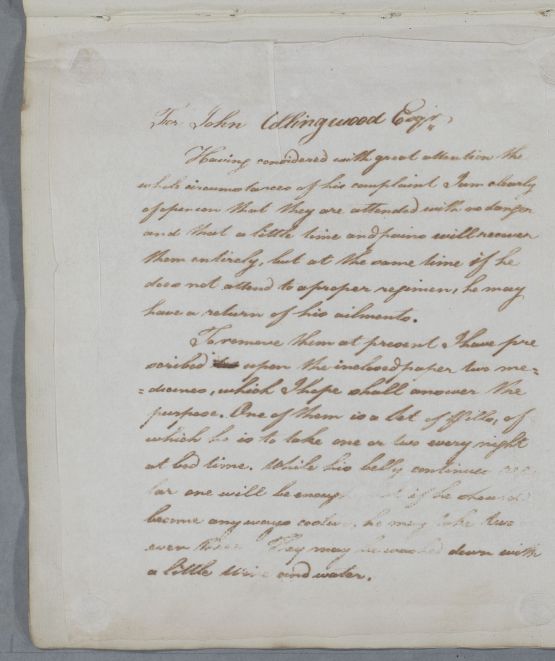 For John Collingwood Esqr,
Having considered with great attention the
whole circumstances of his complaint I am clearly
of openion that they are attended with no danger
and that a little time and pains will recover
them entirely, but at the same time if he
does not attend to a proper regimen, he may
have a return of his ailments.
To remove them at present I have pre
scribed upon the inclosed paper two me=
=decines, which I hope shall answer the
purpose. One of them is a Set of Pills, of
which he is to take one or two every night
at bed time. While his belly continues
lar one will be enough, if he should
become any ways costive, he may take two
even three. They may be washed down with
a little Wine and water.